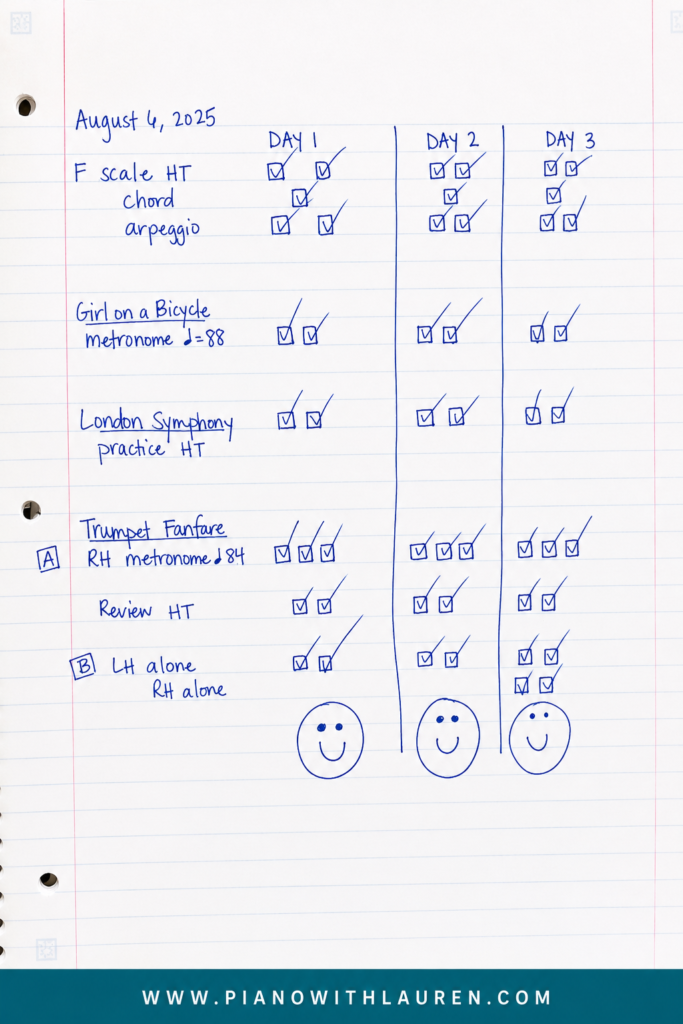 August 6, 2025
DAY 1 DAY 2 DAY 3
F scale HT
chord
arpeggio
Girl on a Bicycle
metronome ♩=88
London Symphony
practice HT
Trumpet Fanfare
A RH metronome ♩84
Review HT
B LH alone
RH alone
WWW.PIANOWITHLAUREN.COM